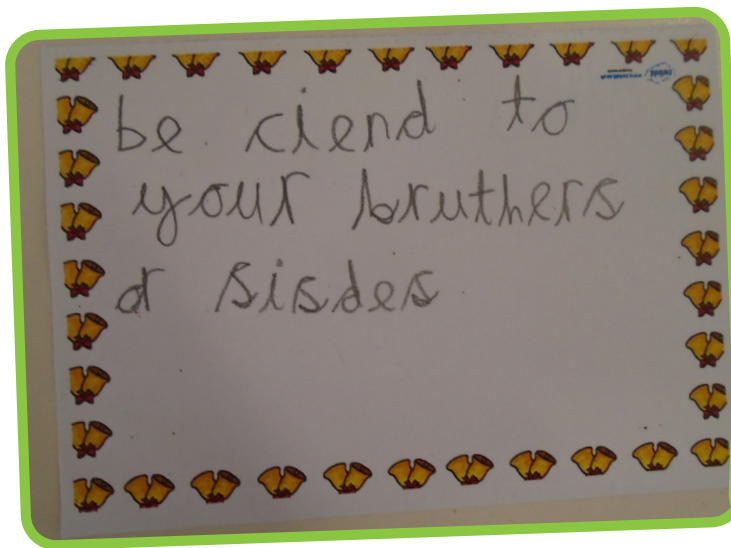 be ciend to
your bruthers
or sisdes